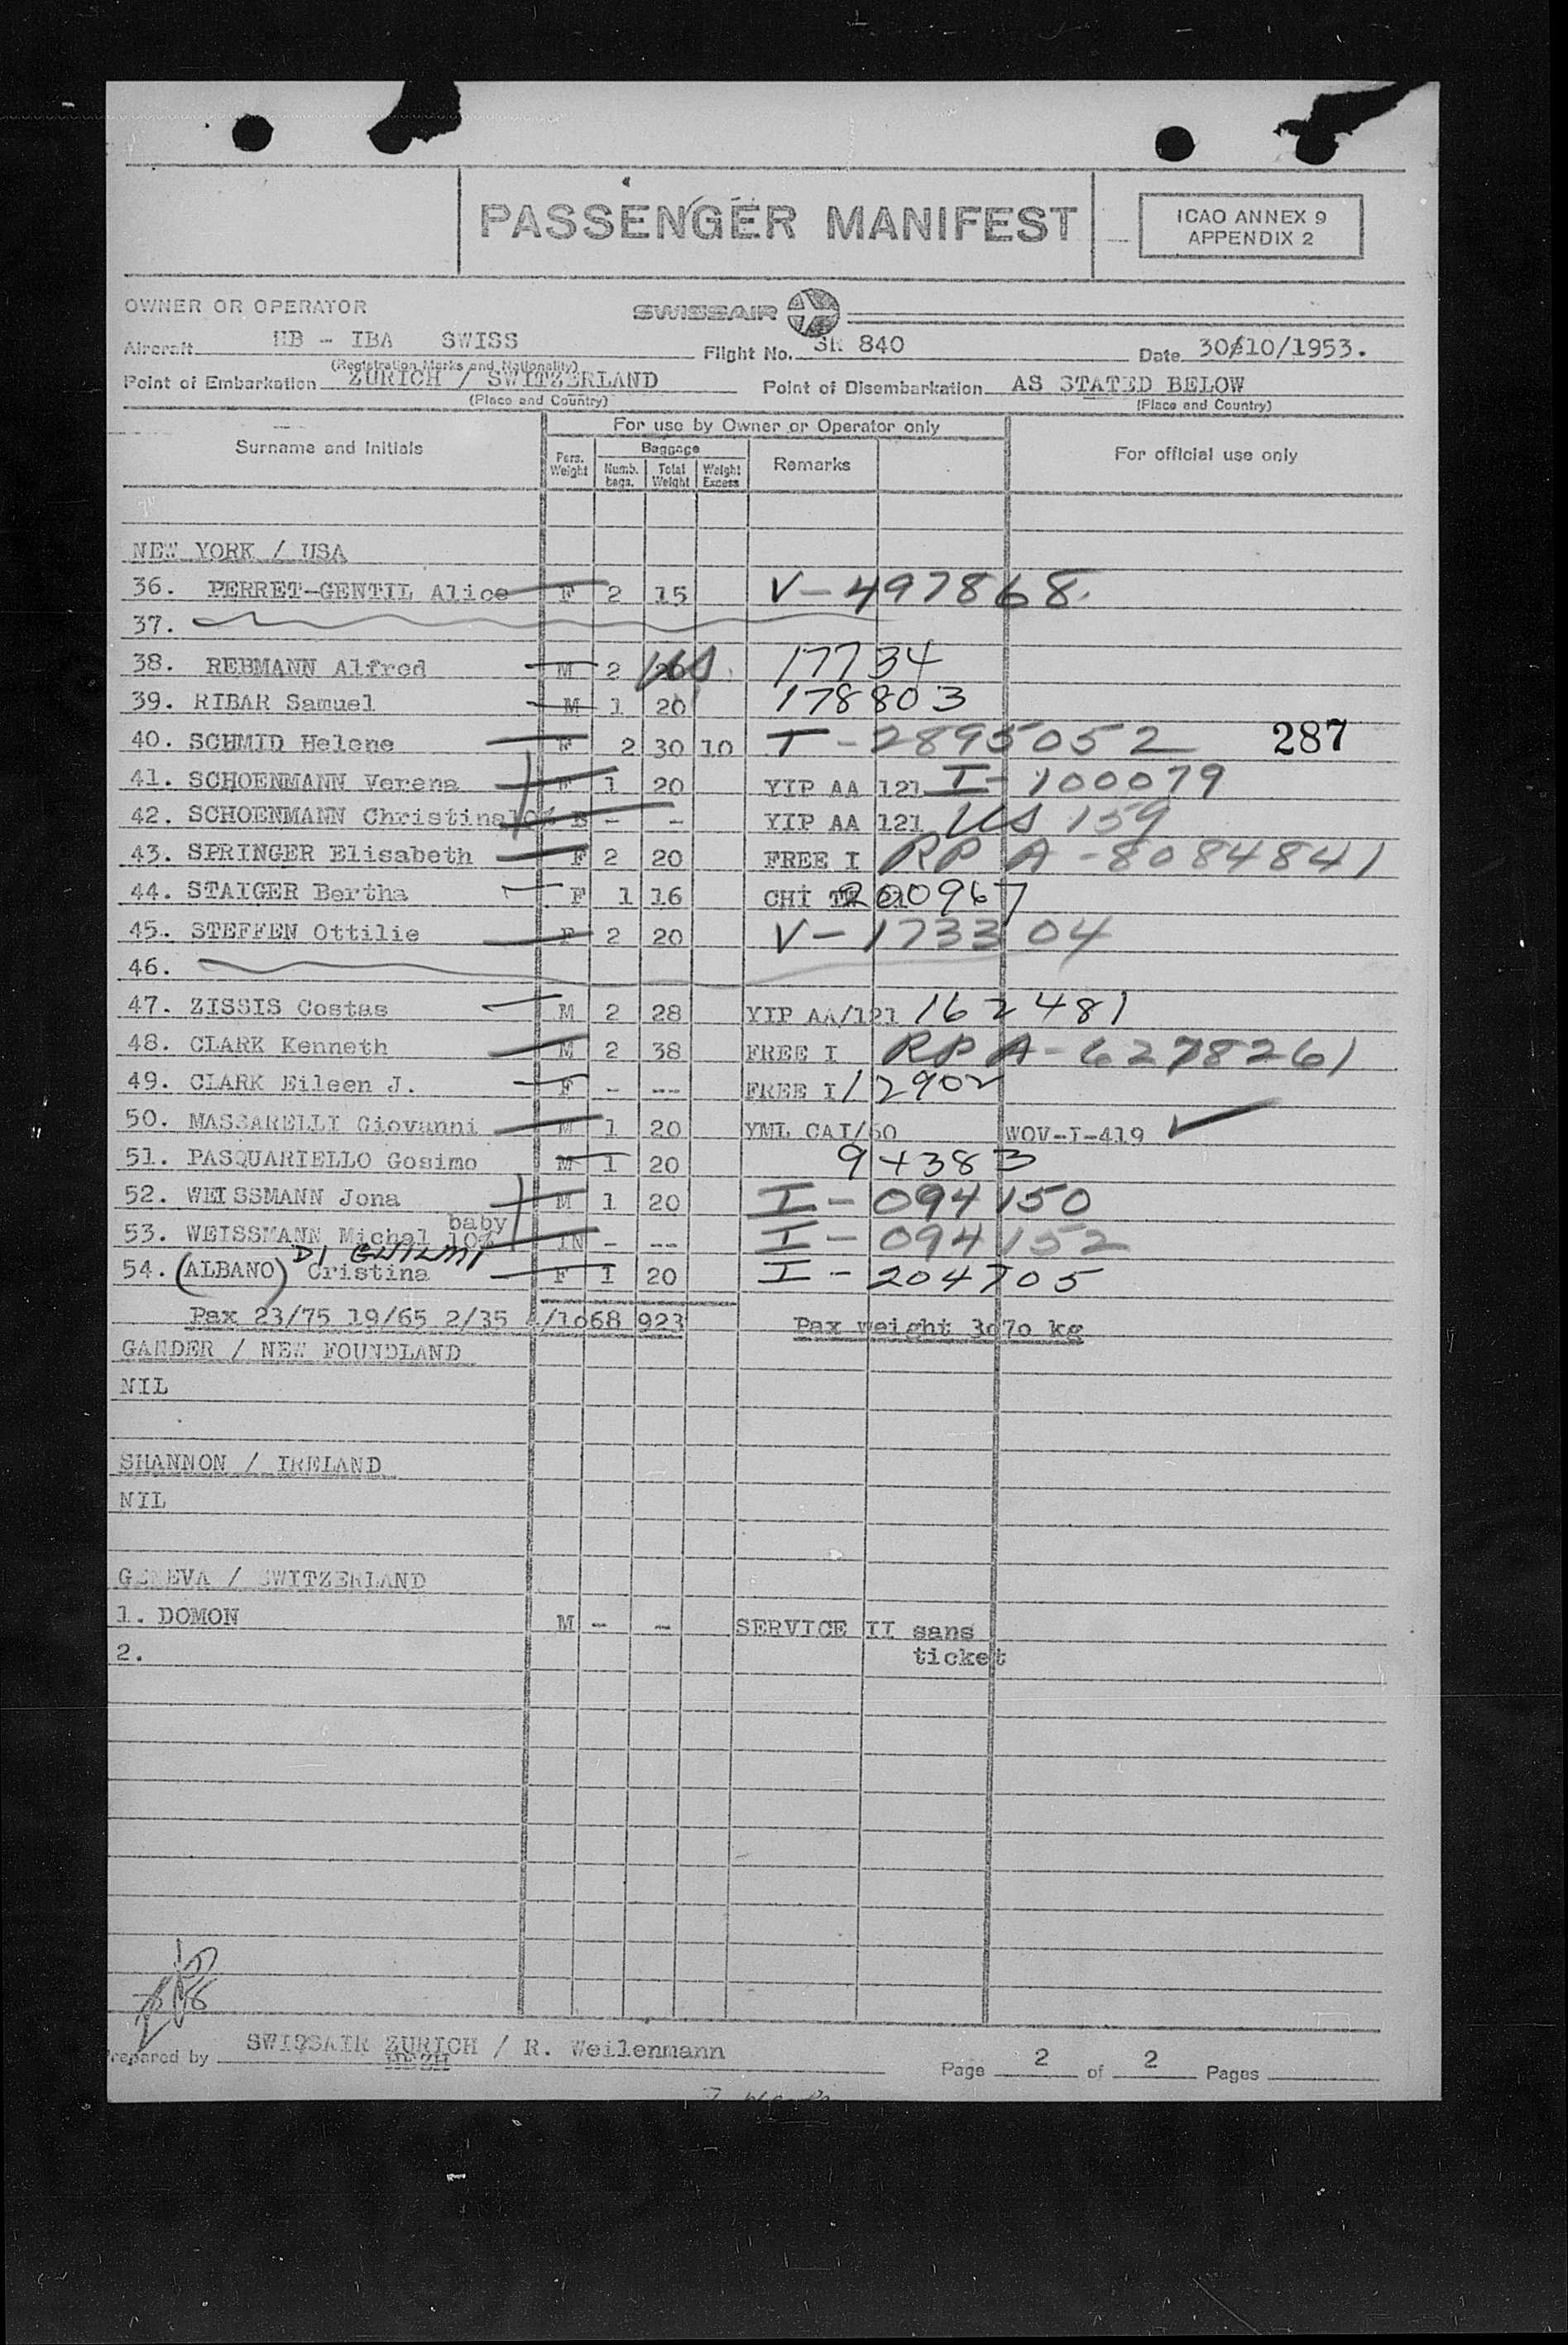 PASSENGER MANIFEST
ICAO ANNEX 9
APPENDIX 2
OWNER OR OPERATOR
SWISSAIR
Aircraft HB - IBA SWISS Flight No. SR 840 Date 30/10/1953.
(Registration Marks and Nationality)
Point of Embarkation ZURICH / SWITZERLAND Point of Disembarkation AS STATED BELOW
(Place and Country) (Place and Country)
For use by Owner or Operator only
Surname and Initials Pers. Weight Baggage Numb. bags. Total Weight Weight Excess Remarks For official use only
NEW YORK / USA
36. PERRET-GENTIL Alice F 2 15 V-497868.
37.
38. REBMANN Alfred M 2 20 US 17734
39. RIBAR Samuel M 1 20 178803
40. SCHMID Helene F 2 30 10 T-2895052 287
41. SCHOENMANN Verena F 1 20 YIP AA 121 I-100079
42. SCHOENMANN Christina 10% - - YIP AA 121 US 159
43. SPRINGER Elisabeth F 2 20 FREE I RP A-8084841
44. STAIGER Bertha F 1 16 CHI 200967
45. STEFFEN Ottilie F 2 20 V-173304
46.
47. ZISSIS Costas M 2 28 YIP AA/121 162481
48. CLARK Kenneth M 2 38 FREE I RP A-6278261
49. CLARK Eileen J. F - -- FREE I 12902
50. MASSARELLI Giovanni M 1 20 YML CAI/60 WOV-I-419 ✓
51. PASQUARIELLO Gosimo M 1 20 94383
52. WEISSMANN Jona M 1 20 I-094150
53. WEISSMANN Michal baby 10% IN - -- I-094152
DI
54. (ALBANO) Cristina F 1 20 I-204705
Pax 23/75 19/65 2/35 /1068 923 Pax weight 3070 kg
GANDER / NEW FOUNDLAND
NIL
SHANNON / IRELAND
NIL
GENEVA / SWITZERLAND
1. DOMON M - - SERVICE II sans
2. ticket
Prepared by SWISSAIR ZURICH / R. Weilenmann
Page 2 of 2 Pages